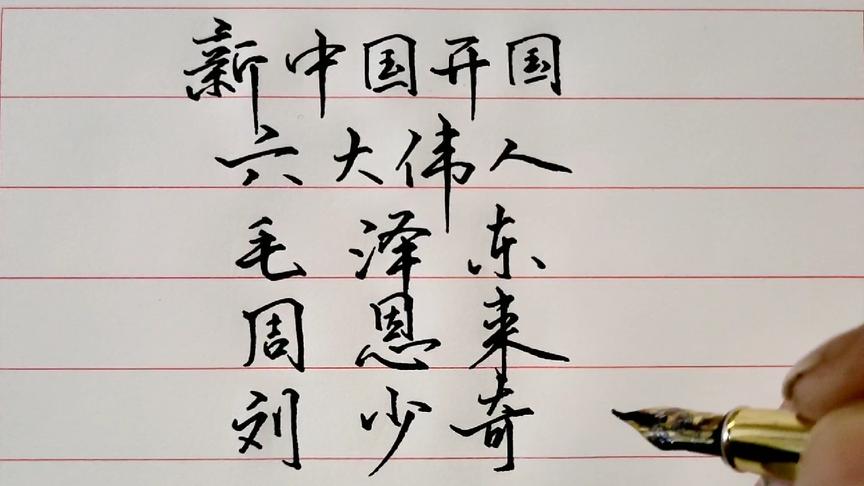 新中国开国
六大伟人
毛泽东
周恩来
刘少奇